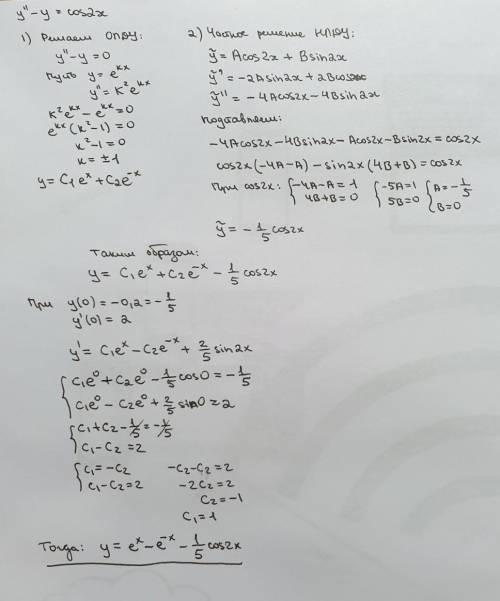 y'' - y = cos2x
1) Решаем ОЛДУ:
y'' - y = 0
Пусть y = e^{kx}
y'' = k² e^{kx}
k² e^{kx} - e^{kx} = 0
e^{kx} (k² - 1) = 0
k² - 1 = 0
k = ±1
y = C₁e^x + C₂e^{-x}
2) Частное решение НЛДУ:
ỹ = Acos2x + Bsin2x
ỹ' = -2Asin2x + 2Bcos2x
ỹ'' = -4Acos2x - 4Bsin2x
Подставляем:
-4Acos2x - 4Bsin2x - Acos2x - Bsin2x = cos2x
cos2x(-4A - A) - sin2x(4B + B) = cos2x
При cos2x: { -4A - A = 1 { -5A = 1 { A = -1/5
4B + B = 0 5B = 0 B = 0
ỹ = -1/5 cos2x
Таким образом:
y = C₁e^x + C₂e^{-x} - 1/5 cos2x
При y(0) = -0,2 = -1/5
y'(0) = 2
y' = C₁e^x - C₂e^{-x} + 2/5 sin2x
{ C₁e⁰ + C₂e⁰ - 1/5 cos0 = -1/5
C₁e⁰ - C₂e⁰ + 2/5 sin0 = 2
{ C₁ + C₂ - 1/5 = -1/5
C₁ - C₂ = 2
{ C₁ = -C₂ -C₂ - C₂ = 2
C₁ - C₂ = 2 -2C₂ = 2
C₂ = -1
C₁ = 1
Тогда: y = e^x - e^{-x} - 1/5 cos2x